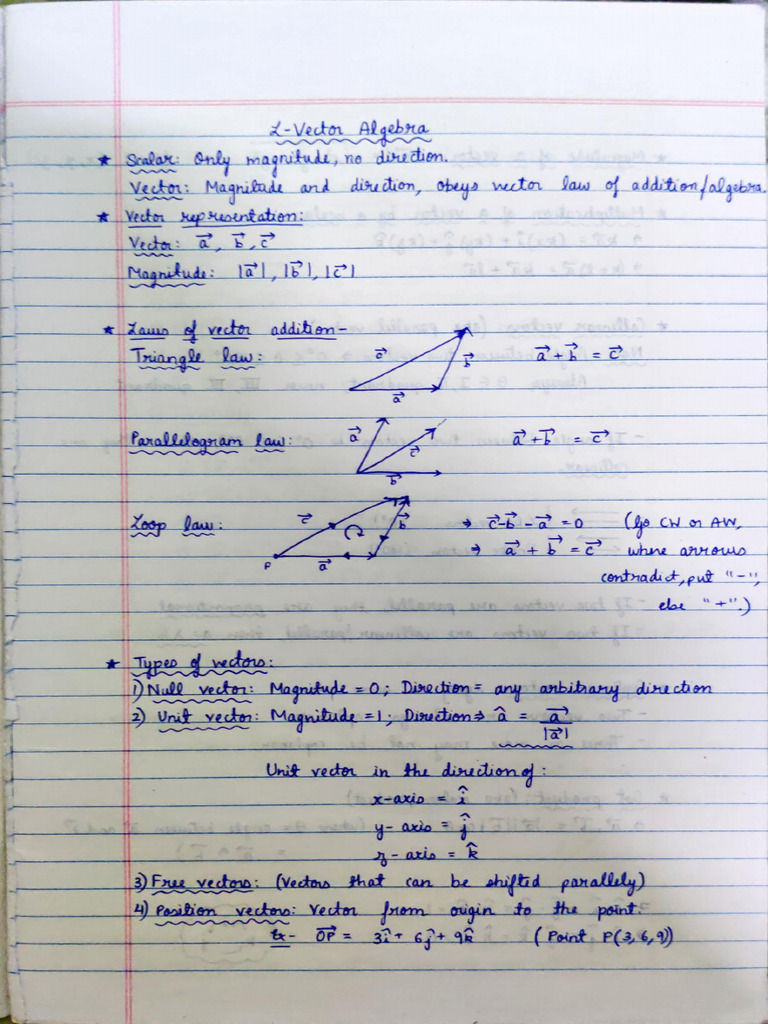 L-Vector Algebra
* Scalar: Only magnitude, no direction.
Vector: Magnitude and direction, obeys vector law of addition/algebra.
* Vector representation:
Vector: a⃗, b⃗, c⃗
Magnitude: |a⃗|, |b⃗|, |c⃗|
* Laws of vector addition-
Triangle law: c⃗ b⃗ a⃗ a⃗ + b⃗ = c⃗
Parallelogram law: a⃗ c⃗ b⃗ a⃗ + b⃗ = c⃗
Loop law: c⃗ b⃗ P a⃗ ⇒ c⃗ - b⃗ - a⃗ = 0 (Go CW or AW,
⇒ a⃗ + b⃗ = c⃗ where arrows
contradict, put "-",
else "+".)
* Types of vectors:
1) Null vector: Magnitude = 0; Direction = any arbitrary direction
2) Unit vector: Magnitude = 1; Direction ⇒ â = a⃗/|a⃗|
Unit vector in the direction of:
x-axis = î
y-axis = ĵ
z-axis = k̂
3) Free vectors: (Vectors that can be shifted parallely)
4) Position vectors: Vector from origin to the point.
Ex- OP⃗ = 3î + 6ĵ + 9k̂ (Point P(3,6,9))